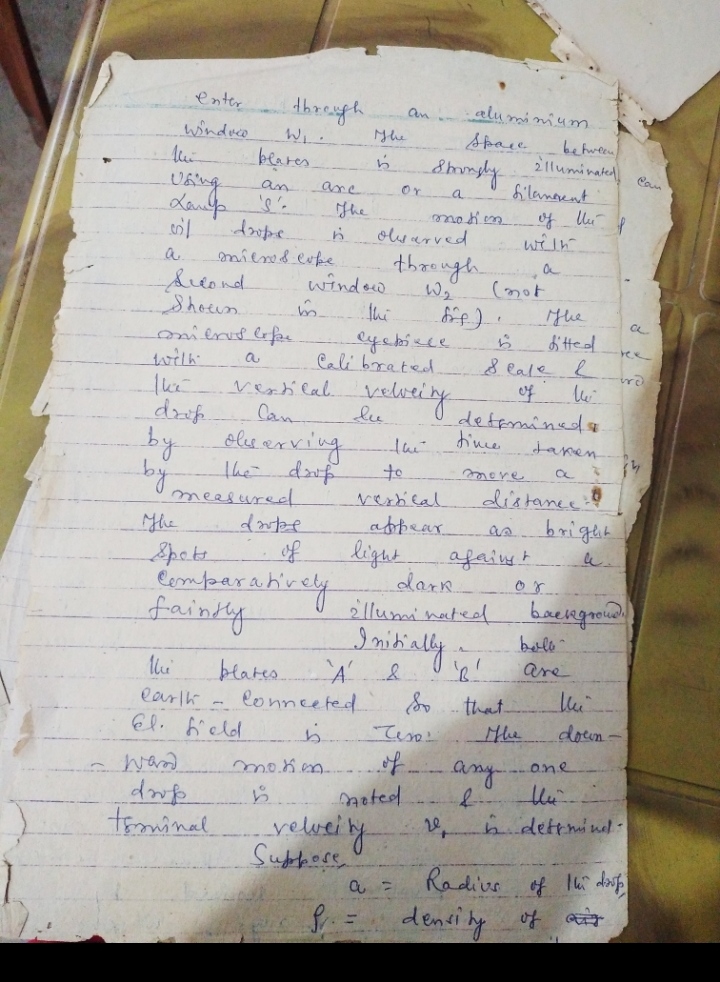 enter through an aluminium
window W₁. The space between
the plates is strongly illuminated
Using an arc or a filament
Lamp 'S'. The motion of the
oil drops is observed with
a microscope through a
Second window W₂ (not
Shown in the fig). The
microscope eyepiece is fitted
with a Calibrated Scale &
the vertical velocity of the
drop Can be determined
by observing the time taken
by the drop to move a
measured vertical distance.
The drops appear as bright
Spots of light against a
Comparatively dark or
faintly illuminated background.
Initially both
the plates 'A' & 'B' are
earth - Connected So that the
El. field is Zero. The down-
- ward motion of any one
drop is noted & the
terminal velocity v₁ is determind.
Suppose,
a = Radius of the drop
ρ = density of
can
a